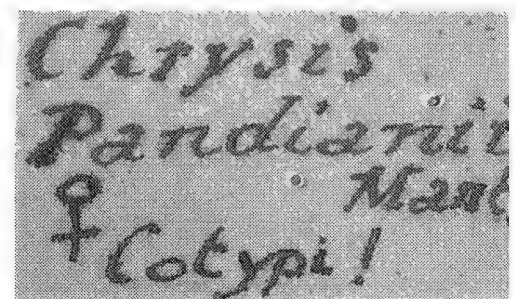 Chrysis
Pandianii
Mant
♀ Cotypi!